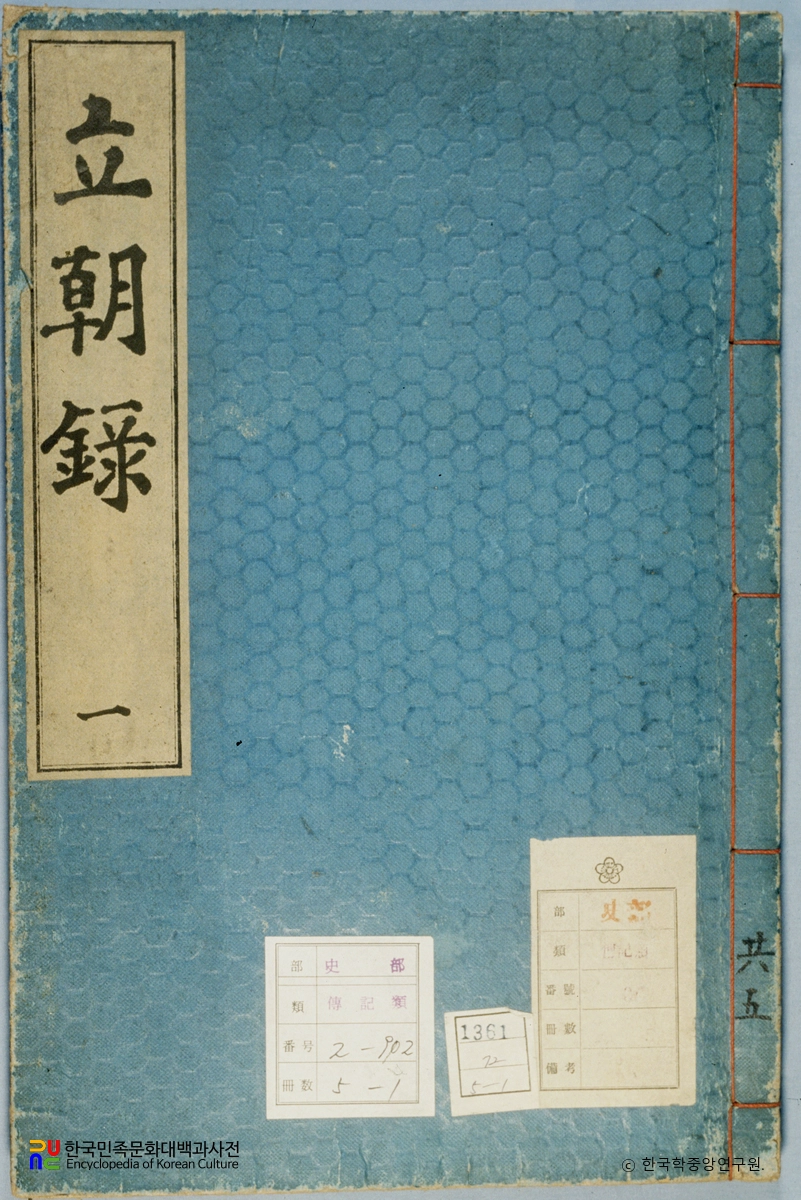 立朝錄
一
共五
部 史部
類 傳記類
番号 2-902
冊数 5-1
1361
5-1
部 史部
類
番號
冊數
備考
한국민족문화대백과사전
Encyclopedia of Korean Culture
© 한국학중앙연구원.